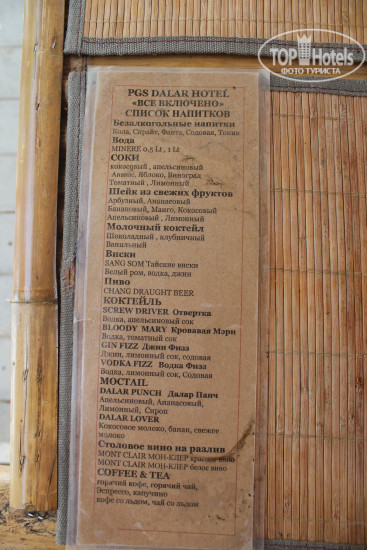 TOPHotels
ФОТО ТУРИСТА
PGS DALAR HOTEL
«ВСЕ ВКЛЮЧЕНО»
СПИСОК НАПИТКОВ
Безалкогольные напитки
Кола, Спрайт, Фанта, Содовая, Тоник
Вода
MINERE 0,5 Lt , 1 Lt
СОКИ
кокосовый , апельсиновый
Ананас, Яблоко, Виноград
Томатный , Лимонный
Шейк из свежих фруктов
Арбузный, Ананасовый
Банановый, Манго, Кокосовый
Апельсиновый , Лимонный
Молочный коктейл
Шоколадный , клубничный
Ванильный
Виски
SANG SOM Тайские виски
Белый ром, водка, джин
Пиво
CHANG DRAUGHT BEER
КОКТЕЙЛЬ
SCREW DRIVER Отвертка
Водка, апельсиновый сок
BLOODY MARY Кровавая Мэри
Водка, томатный сок
GIN FIZZ Джин Физз
Джин, лимонный сок, содовая
VODKA FIZZ Водка Физз
Водка, лимонный сок, Содовая
MOCTAIL
DALAR PUNCH Далар Панч
Апельсиновый, Ананасовый,
Лимонный, Сироп
DALAR LOVER
Кокосовое молоко, банан, свежее
молоко
Столовое вино на разлив
MONT CLAIR МОН-КЛЕР красное вино
MONT CLAIR МОН-КЛЕР белое вино
COFFEE & TEA
горячий кофе, горячий чай,
Эспрессо, капучино
кофе со льдом, чай со льдом